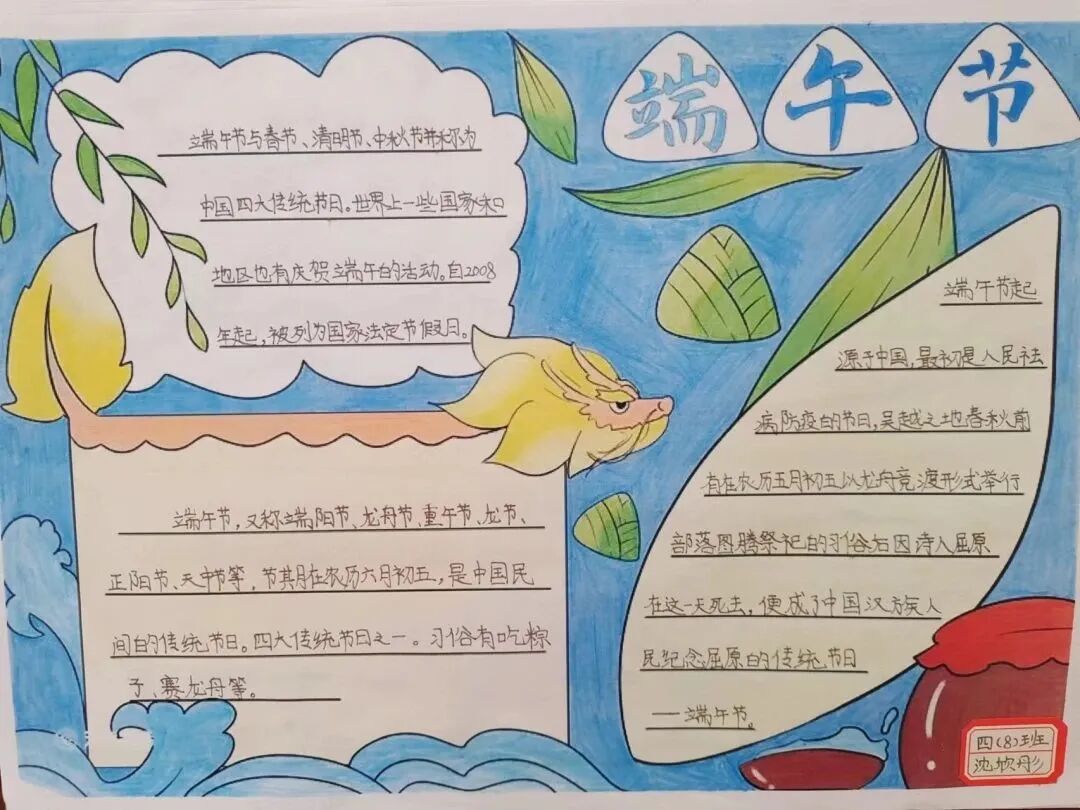 端午节
端午节与春节、清明节、中秋节并称为
中国四大传统节日。世界上一些国家和
地区也有庆贺端午的活动。自2008
年起，被列为国家法定节假日。
端午节，又称端阳节、龙舟节、重午节、龙节、
正阳节、天中节等，节其月在农历六月初五，是中国民
间的传统节日。四大传统节日之一。习俗有吃粽
子、赛龙舟等。
端午节起
源于中国，最初是人民祛
病防疫的节日，吴越之地春秋前
有在农历五月初五以龙舟竞渡形式举行
部落图腾祭祀的习俗后因诗人屈原
在这一天死去，便成了中国汉族人
民纪念屈原的传统节日
——端午节。
四(8)班
沈 彤